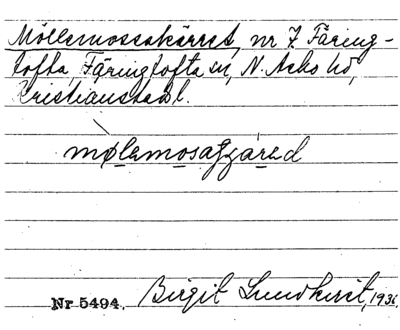 Möllemossakärret, nr 7 Färing-
tofta, Färingtofta sn, N. Asbo hd,
Kristianstads l.
mølemosaçäred
Nr 5494. Birgit Lundkvist, 1936